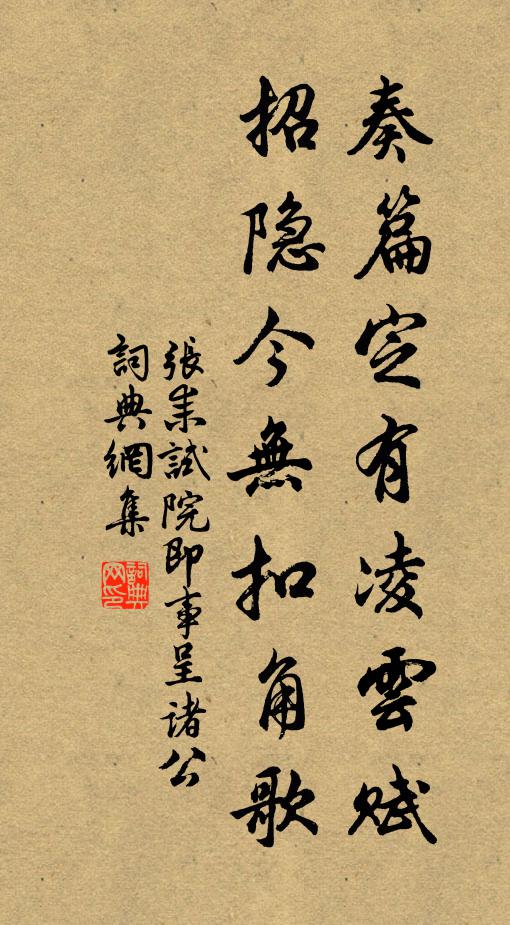 奏篇定有凌雲賦
招隐今無扣角歌
張耒試院即事呈诸公
詞典網集
詞典网印